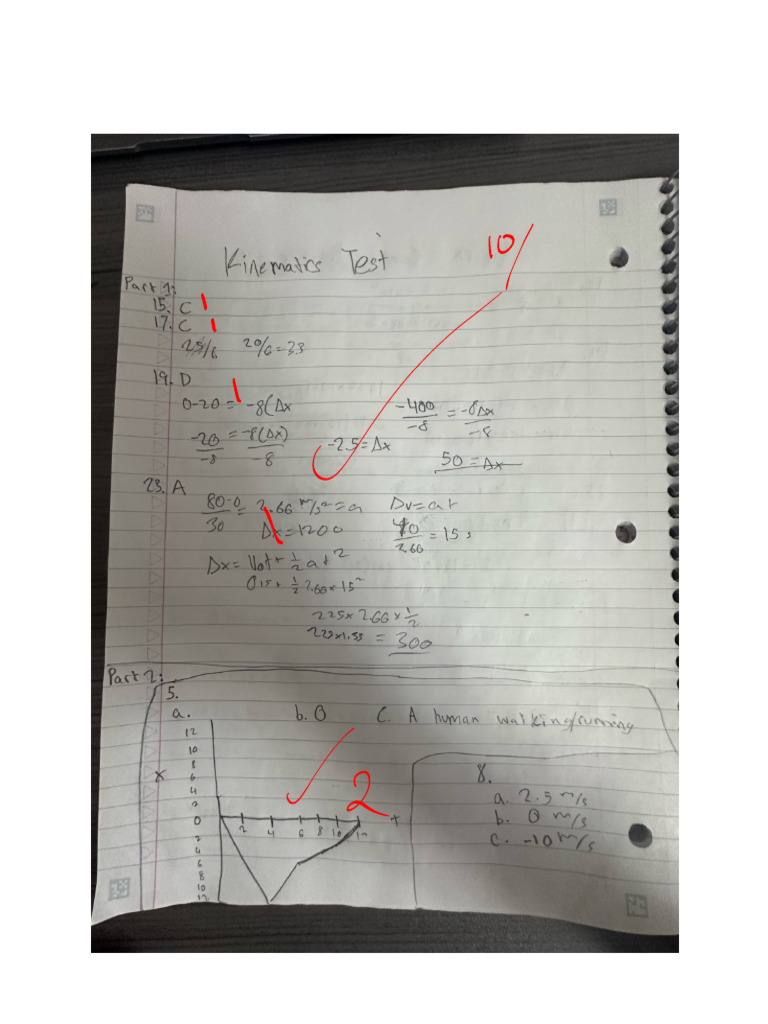 Kinematics Test
10/
Part 1:
15. C 1
17. C 1
25/6 20/6=3.3
19. D 1
0-20 = -8(Δx
-400/-8 = -8Δx/-8
-20/-8 = -8(Δx)/-8
-2.5=Δx
50 = Δx
23. A
80-0/30 = 2.66 m/s²=a
Δv=at
Δx=1200
40/2.66 = 15 s
Δx= V₀t+ 1/2 at²
0 15+ 1/2 2.66×15²
225×2.66×1/2
225×1.33 = 300
Part 2:
5.
a.
b. 0
C. A human walking/running
12
10
8
6
4
2
0
2
4
6
8
10
12
x
2 4 6 8 10 12 t
2
8.
a. 2.5 m/s
b. 0 m/s
c. -10 m/s